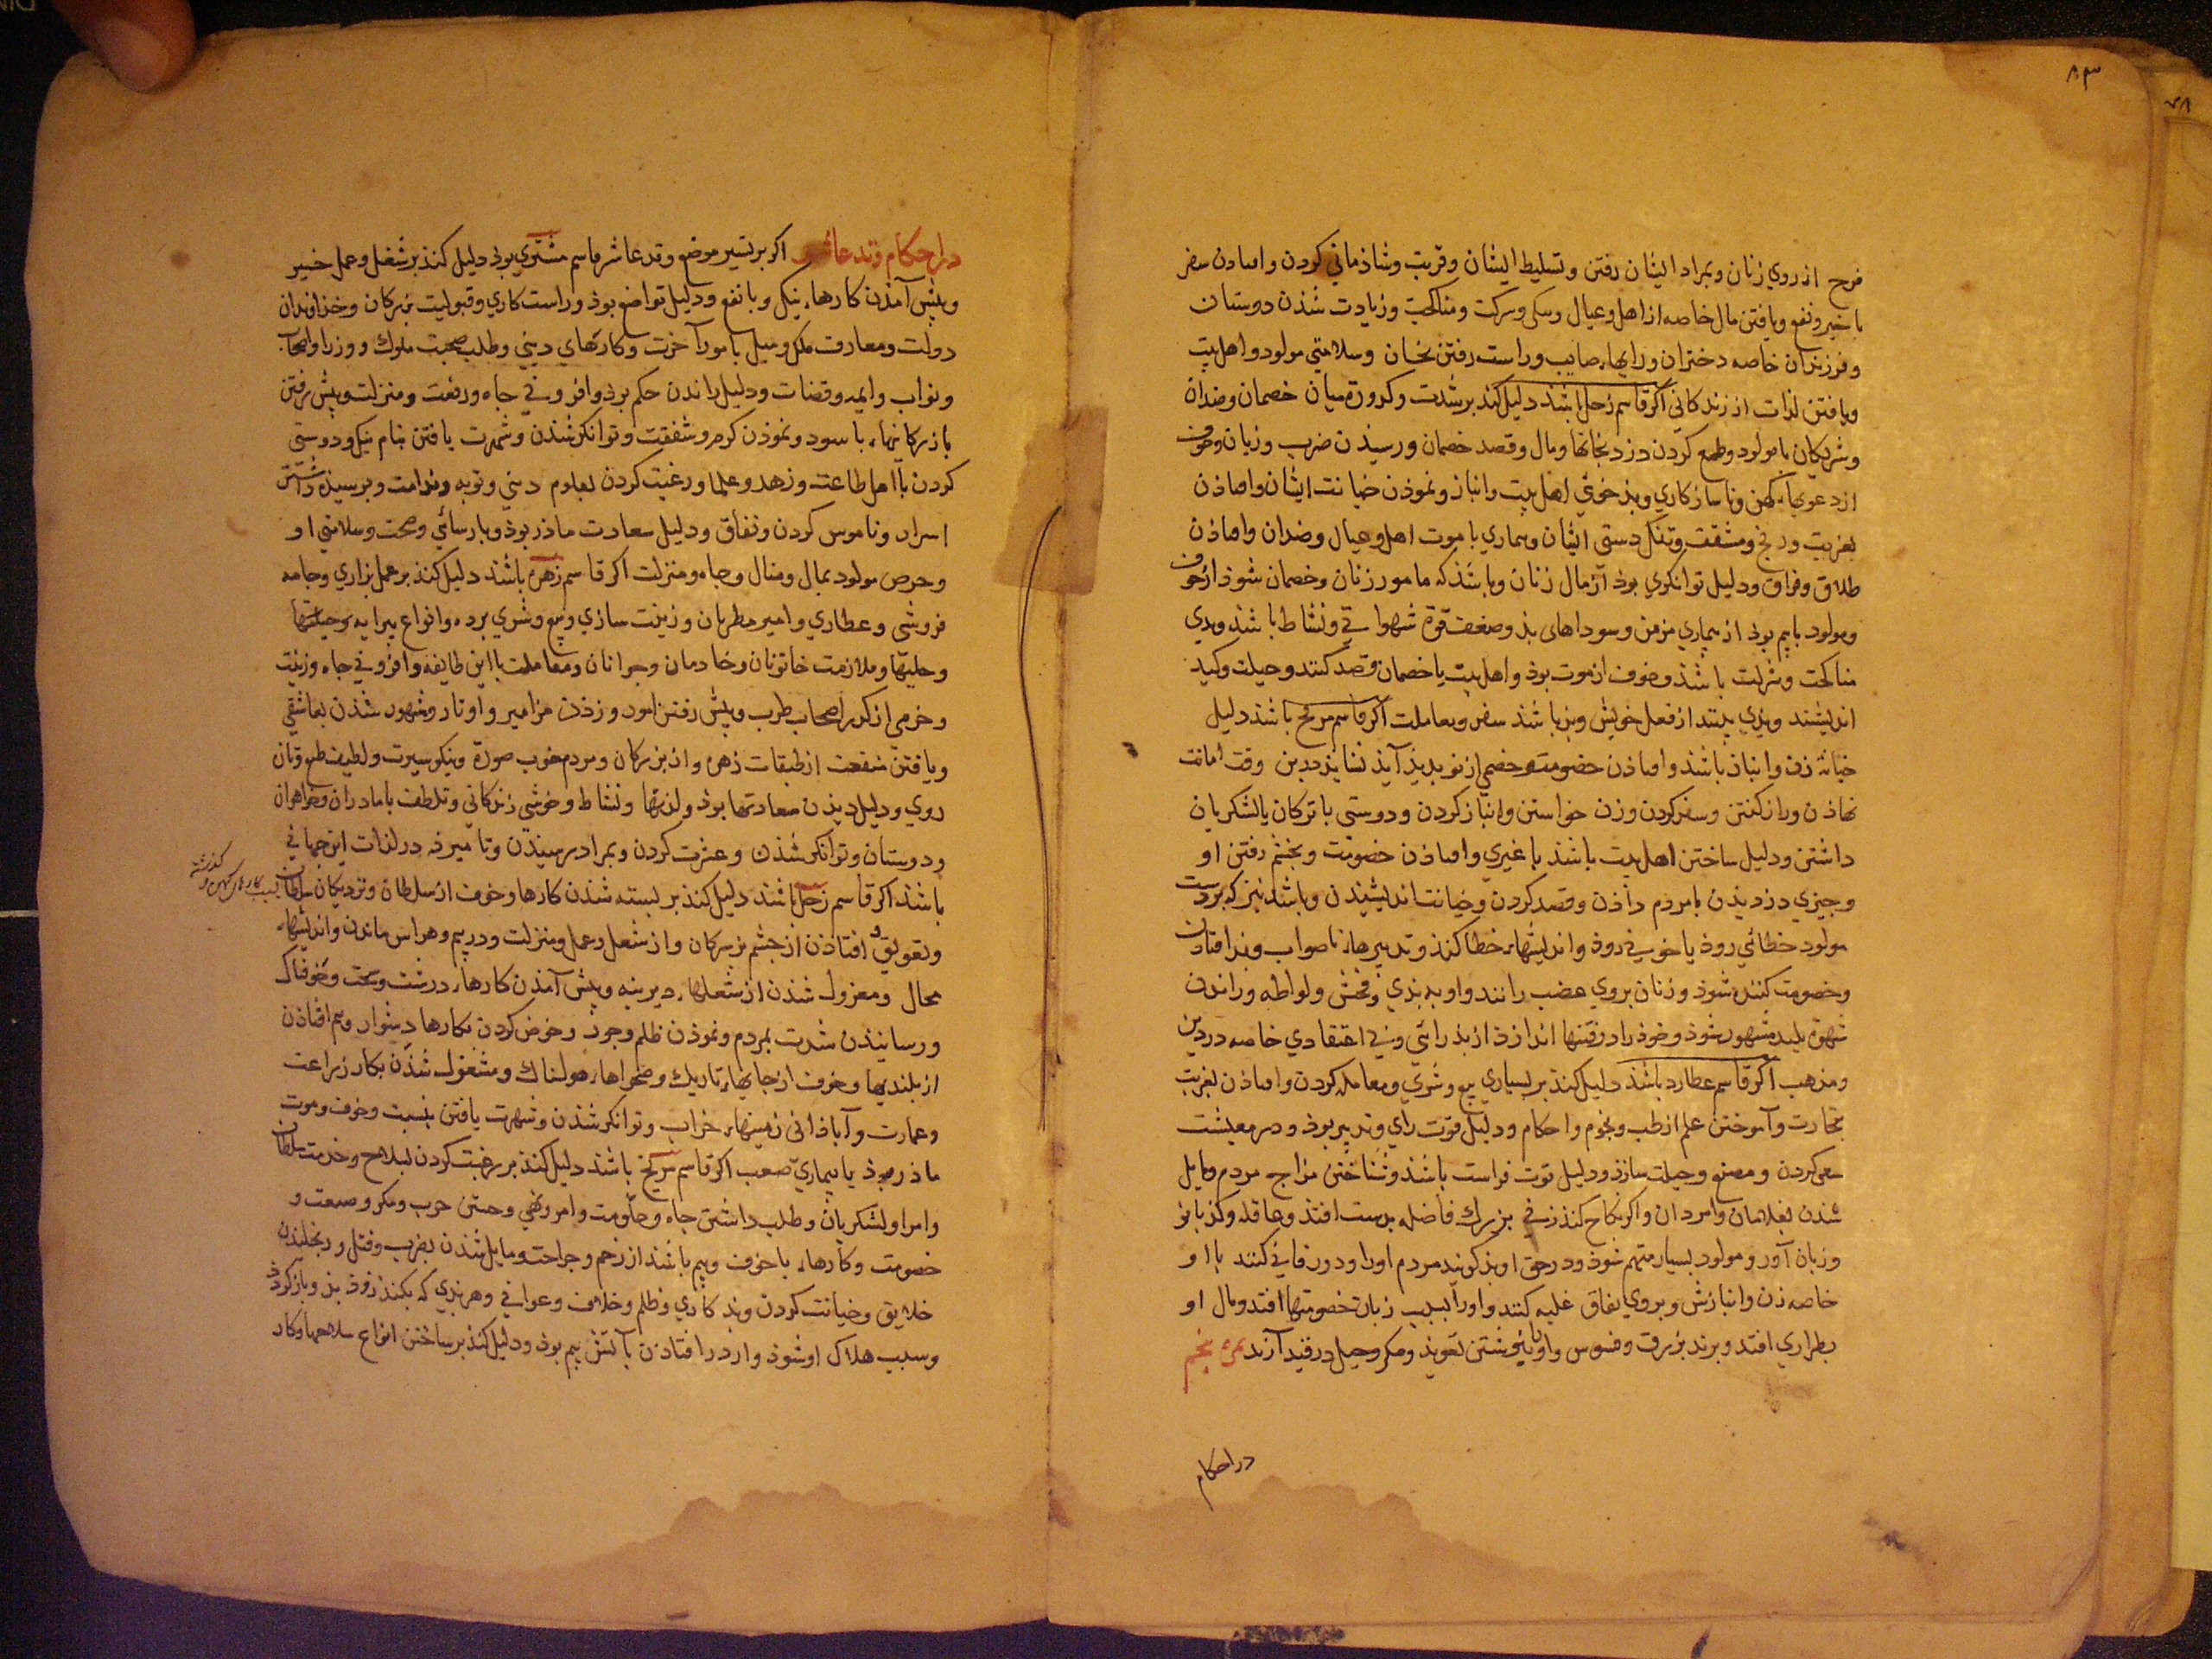 ۸۳
فرح از روی زنان و بمراد ایشان رفتن و تسلیط ایشان و قربت و شاذمانی کردن و افتادن سفر
با خیر و نفع و یافتن مال خاصه از اهل و عیال و شرکت و مناکحت و زیادت شذن دوستان
و فرزندان خاصه دختران و رایهاء صایب و راست رفتن سخنان و سلامتی مولود و اهل بیت
و یافتن لذات از زندکانی اکر قاسم زحل باشذ دلیل کند بر شدت و کدورة میان خصمان و ضدان
و شریکان با مولود و طمع کردن دزد بخانها و مال و قصد خصمان و رسیدن ضرب و زیان و خوف
از دعویهاء کهن و ناسازکاری و بذخوئی اهل بیت و انباز و نموذن خیانت ایشان و افتاذن
بغربت و رنج و مشقت و تنکدستی ایشان و بیماری یا موت اهل و عیال و ضدان و افتاذن
طلاق و فراق و دلیل توانکری بوذ از مال زنان و باشد که مامور زنان و خصمان شوذ از خوف
و مولود با بیم بوذ از بیماری مزمن و سوداهای بذ و ضعف قوة شهوانی و نشاط باشد و بدی
مناکحت و شرکت باشذ و خوف از موت بوذ و اهل بیت یا خصمان قصد کنند و حیلت و کید
اندیشند و بدی بینند از فعل خویش و بذ باشذ سفر و معاملت اکر قاسم مریخ باشذ دلیل
خیانة زن و انباز باشذ و افتاذن خصومت و خصمی از نو بدیذ آیذ نشایذ درین وقت امانت
نهاذن و راز کفتن و سفر کردن و زن خواستن و انباز کردن و دوستی با ترکان یا لشکریان
داشتن و دلیل ساختن اهل بیت باشذ با غیری و افتاذن خصومت و بخشم رفتن او
و جیزی دزدیذن یا مردم داذن و قصد کردن و خیانت اندیشیذن و باشد نیز که بردست
مولود خطائی روذ یا خونی روذ و اندیشهاء خطا کنذ و تدبیرهاء ناصواب و بذ افتاذن
و خصومت کننده شوذ و زنان بر وی غضب رانند و او به بذی و فحش و لواطه و راندن
شهوة بلید مشهور شوذ و خوذ را در فتنها اندازذ از بذ رائی و بی اعتقادی خاصه در دین
و مذهب اکر قاسم عطارد باشذ دلیل کنذ بر بسیاری بیع و شری و معامله کردن و افتاذن بغربت
تجارت و آموختن علم از طب و نجوم و احکام و دلیل قوت رای و تدبیر بوذ و در معیشت
سعی کردن و مصنع و حیلت سازذ و دلیل قوت فراست باشذ و شناختن مزاج مردم و مایل
شذن بغلامان و امردان و اکر نکاح کند زنی بزرک فاضله بدست افتد و عاقله و کذبانو
و زبان آور و مولود بسیار متهم شوذ و در حق او بذ کویند مردم او را و دورفاقی کنند با او
خاصه زن و انبازش و بروی نفاق غلبه کنند و او را بسبب زبان خصومتها افتد و مال او
بطراری افتد و برند بزرق و فسوس و او بانی وشتن تعویذ و مکر و حیل در قید آرند نمره بنجم
در احکام
در احکام وتد عاشر اکر بر تسییر موضع وتد عاشر قاسم مشتری بوذ دلیل کنذ بر شغل و عمل خیر
و بیش آمذن کارهاء نیکی و با نفع و دلیل تواضع بوذ و راست کاری و قبولیت بزرکان و خذاوندان
دولت و معارف ملک و میل با مور آخرت و کارهای دینی و طلب صحبت ملوک و وزرا و اصحاب
و نواب و ایمه و قضات و دلیل راندن حکم بوذ و افزونی جاه و رفعت و منزلت و بیش رفتن
بازرکانیهاء با سود و نموذن کرم و شفقت و توانکر شذن و شهرت یافتن بنام نیک و دوستی
کردن با اهل طاعت و زهد و علما و رغبت کردن بعلوم دینی و توبه و ندامت و بوسیذه داشتن
اسرار و ناموس کردن و نفاق و دلیل سعادت ماذر بوذ و بارسائی و صحت و سلامتی او
و حرص مولود بمال و منال و جاه و منزلت اکر قاسم زهره باشذ دلیل کنذ بر عمل بزازی و جامه
فروشی و عطاری و امیر مطربان و زینت سازی و بیع و شری برده و انواع بیرایه و حیلتها
و حلیتها و ملازمت خاتونان و خادمان و جوانان و معاملت با این طایفه و افزونی جاه و زینت
و خرمی از کدر اصحاب طرب و بیش رفتن امور و زذن مزامیر و اوتار و مشهور شذن بعاشقی
و یافتن منفعت از طبقات زهره و از بزرکان و مردم خوب صورة و نیکو سیرت و لطیف طبع و تازه
روی و دلیل دیذن سعادتها بوذ و لذتها و نشاط و خوشی زندکانی و تلطف با ماذران و خواهران
و دوستان و توانکر شذن و عشرت کردن و بمراد رسیذن و تامیرفه در لذات این جهانی
باشذ اکر قاسم زحل باشد دلیل کنذ بر بسته شذن کارها و خوف از سلطان و نزدیکان سلطان
بسبب کارهای کهن و کذشته
و تعویق و افتاذن از جشم بزرکان و از شغل و عمل و منزلت و در بیم و هراس ماندن و اندیشهاء
محال و معزول شذن از شغلهاء دیرینه و بیش آمذن کارهاء درشت و سخت و خوفناک
و رسانیذن شدت بمردم و نموذن ظلم و جور و خوض کردن بکارهاء دشوار و بیم افتاذن
از بلندیها و خوف از جایهاء تاریک و صحراهاء هولناک و مشغول شذن بکار زراعت
و عمارت و آباذانی زمینهاء خراب و توانکر شذن و شهرت یافتن بنسبت و خوف و موت
ماذر بوذ یا بیماری صعب اکر قاسم مریخ باشذ دلیل کنذ بر رغبت کردن بسلاح و خدمت سلطان
و امرا و لشکریان و طلب داشتن جاه و حکومت و امر و نهی و جستن حرب و مکر و صنعت و
خصومت و کارهاء با خوف و بیم باشذ از زخم و جراحت و مایل شذن بضرب و قتل و رنجانیدن
خلایق و خیانت کردن و بذ کاری و ظلم و خلاف و عوانی و هر بذی که بکنذ زوذ بذو باز کردذ
و سبب هلاک او شوذ و از در افتاذن بآتش بیم بوذ و دلیل کنذ بر ساختن انواع سلاحها و کار